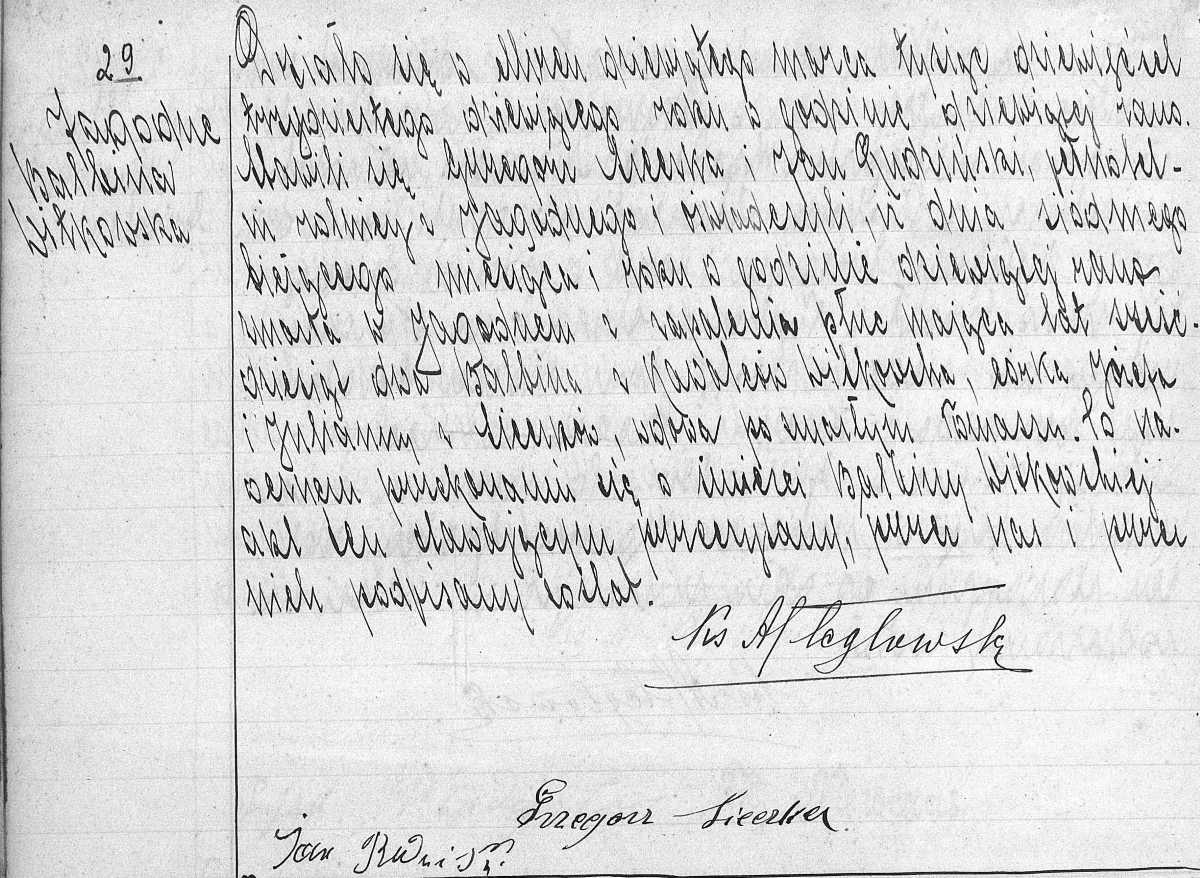 29
Jagodne
Balbina
Witkowska
Działo się w dziewiątego marca tysiąc dziewięćset
trzydziestego dziewiątego roku o godzinie dziewiątej rano.
Stawili się, Grzegorz Sieczka i Jan Rudziński, pełnolet-
ni rolnicy z Jagodnego i oświadczyli iż dnia siódmego
bieżącego miesiąca i roku o godzinie dziewiątej rano
zmarła w Jagodnem z zapalenia płuc mająca lat sześć-
dziesiąt dwa Balbina z Witkowska, córka Józefa
i Julianny z wdowa po zmarłym Tomaszu. Po na-
ocznem przekonaniu się o śmierci Balbiny Witkowskiej
akt ten stawającym przeczytany, przez nas i przez
nich podpisany został.
Ks A
Grzegorz Sieczka
Jan